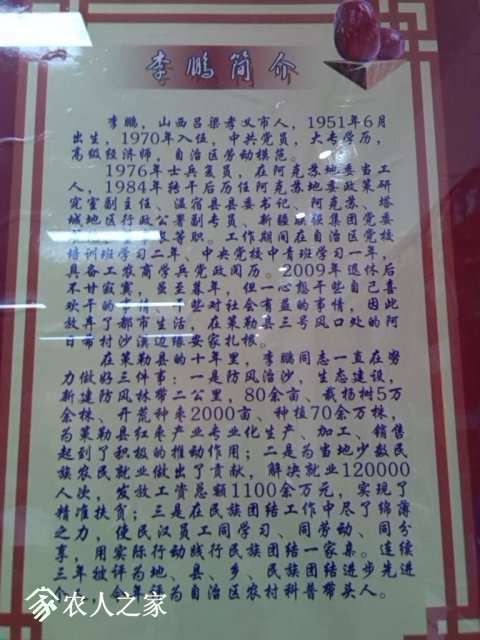 李鹏简介
李鹏，山西吕梁孝义市人，1951年6月
出生，1970年入伍，中共党员，大专学历，
高级经济师，自治区劳动模范。
1976年士兵复员，在阿克苏地委当工
人，1984年转干后历任阿克苏地委政策研
究室副主任、温宿县县委书记、阿克苏、塔
城地区行政公署副专员、新疆联强集团党委
长等职。工作期间在自治区党校
培训班学习二年、中央党校中青班学习一年，
具备工农商学兵党政阅历。2009年退休后
不甘寂寞，虽至暮年，但一心想干些自己喜
欢干的事情、干些对社会有益的事情，因此
放弃了都市生活，在策勒县三号风口处的阿
日希村沙漠边缘安家扎根。
在策勒县的十年里，李鹏同志一直在努
力做好三件事：一是防风治沙，生态建设，
新建防风林带二公里，80余亩、栽杨树5万
余株、开荒种枣2000亩、种植70余万株，
为策勒县红枣产业专业化生产、加工、销售
起到了积极的推动作用；二是为当地少数民
族农民就业做出了贡献，解决就业120000
人次，发放工资总额1100余万元，实现了
精准扶贫；三是在民族团结工作中尽了绵薄
之力，使民汉员工同学习、同劳动、同分
享，用实际行动践行民族团结一家亲。连续
三年被评为地、县、乡、民族团结进步先进
为自治区农村科普带头人。
农人之家